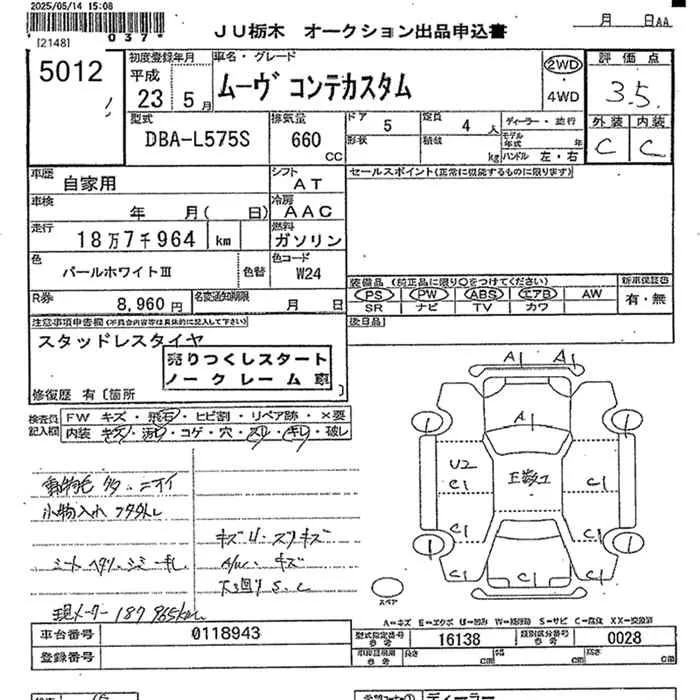 2025/05/14 15:08
037
[2148]
JU栃木 オークション出品申込書
月 日AA
5012
初度登録年月
平成
23 5月
車名・グレード
ムーヴ コンテカスタム
2WD
4WD
評価点
3.5
外装 内装
C C
型式
DBA-L575S
排気量
660
CC
ドア
5
形状
定員
4人
積載
kg
ディーラー・並行
モデル年式 年
ハンドル 左・右
車歴
自家用
シフト
AT
セールスポイント(正常に機能するものに限ります)
車検
年 月( 日)
冷房
AAC
走行
18万7千964 km
燃料
ガソリン
色
パールホワイトⅢ
色替
色コード
W24
R券
8,960円
名変通知期限
月 日
装備品 (純正品に限り○をつけてください)
PS PW ABS エアB AW
SR ナビ TV カワ
新車保証書
有・無
後日品
注意事項申告欄(不具合内容等は具体的に記入して下さい)
スタッドレスタイヤ
売りつくしスタート
ノークレーム車
修復歴 有〔箇所
検査員記入欄
FW キズ・飛石・ヒビ割・リペア跡・×要
内装 キズ・汚レ・コゲ・穴・スレ・キレ・破レ
小物入れ フタ外レ
キズ U.スリキズ
シート ヘタリ.シミ.キレ
A/W.キズ
下回り S.C
現メーター 187965km
A1 A1
A1
1 1
U2
C1
C1
C1
C1
1 1
C1 C1
スペア
A=キズ E=エクボ U=凹み W=補修跡 S=サビ C=腐蝕 XX=交換済
車台番号
0118943
登録番号
型式指定番号
参考
16138
類別区分番号
参考
0028
参考
長さ cm
幅 cm
高さ cm
ディーラー